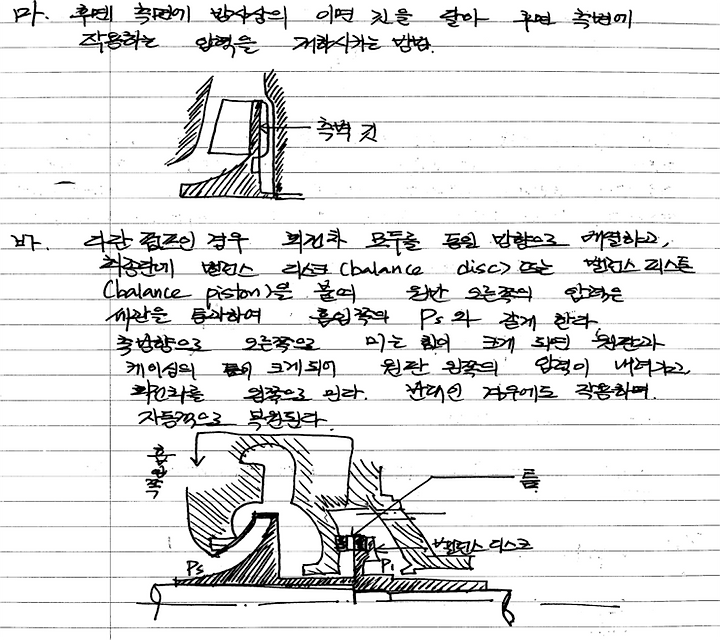 마. 후면 측벽에 방사상의 이면 깃을 달아 후면 측벽에
작용하는 압력을 저하시키는 방법.
측벽 깃
바. 다단 펌프인 경우 회전차 모두를 동일 방향으로 배열하고,
최종단에 밸런스 디스크 (balance disc) 또는 밸런스 피스톤
(balance piston)을 붙여 원반 오른쪽의 압력은
세관을 통하여 흡입쪽의 Ps와 같게 한다.
축방향으로 오른쪽으로 미는 힘이 크게 되면 원판과
케이싱의 틈이 크게되어 원판 왼쪽의 압력이 내려가고,
회전차를 왼쪽으로 민다. 반대인 경우에도 작용하며.
자동적으로 복원된다.
흡입쪽
틈
밸런스 디스크
Ps
P1